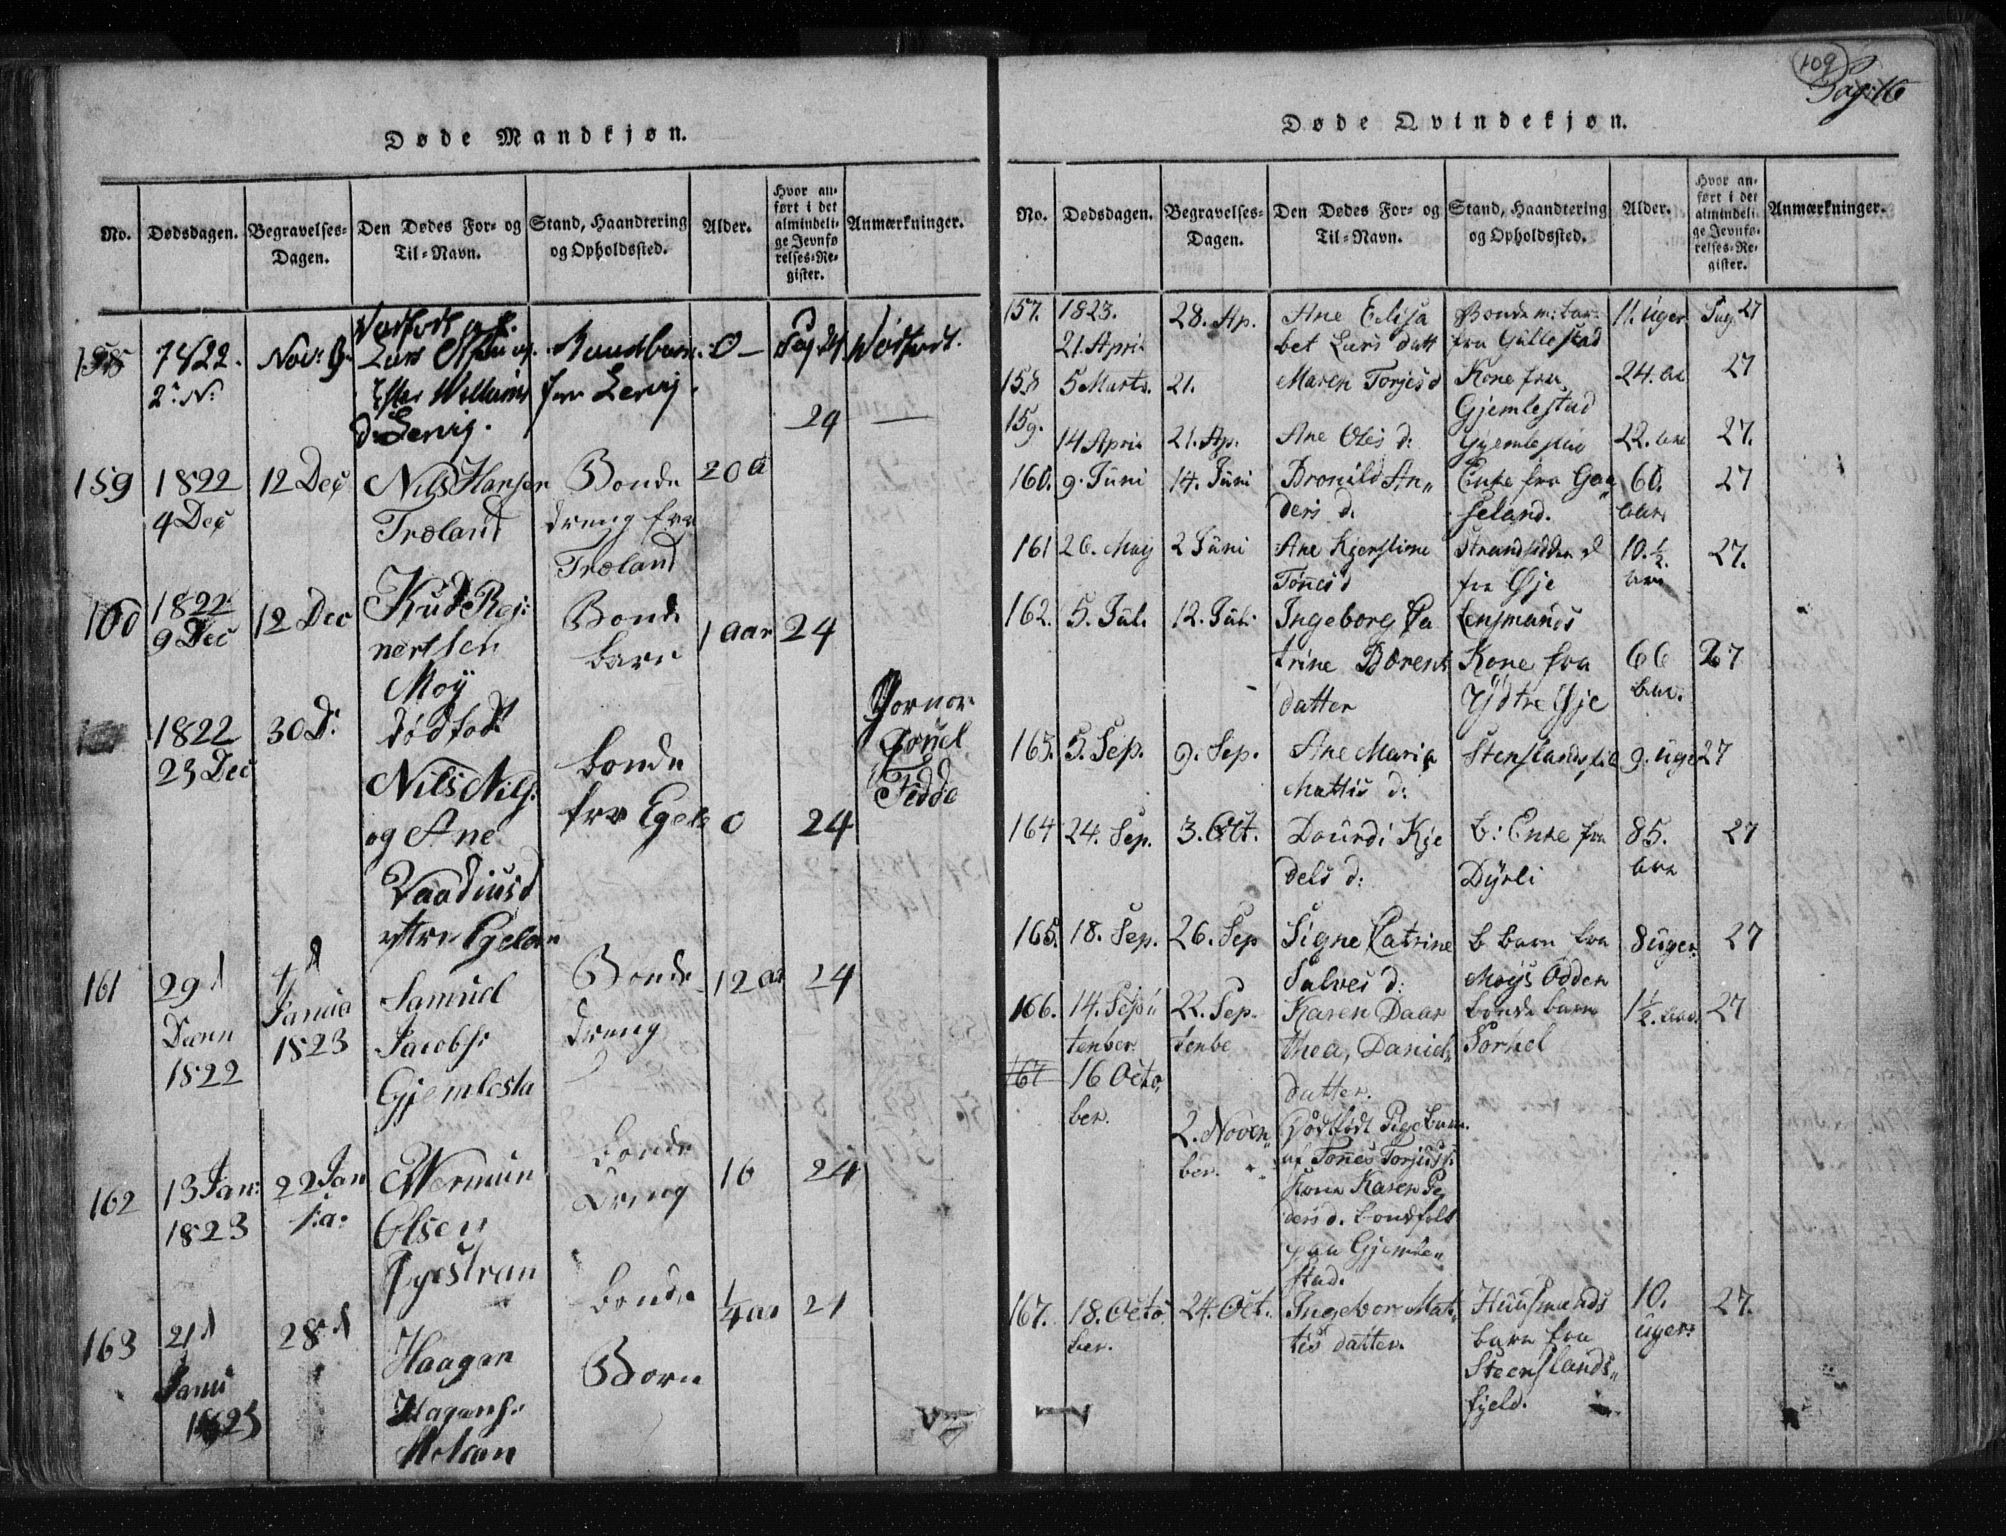 109
Pag: 16
Døde Mandkjøn.
No.
Dødsdagen.
Begravelses-
Dagen.
Den Dødes For- og
Til-Navn.
Stand, Haandtering
og Opholdssted.
Alder.
Hvor an-
ført i det
almindeli-
ge Jevnfø
relses-Re-
gister.
Anmærkninger.
158
1822.
2. N.
Nov: 9.
Lars
d: Lervig.
fra Lervig.
0 —
Pag 24
24
Dødfødt.
159
1822
4 Dec
12 Dec
Nils Hansen
Træland
Bonde
dreng fra
Træland
20 a
160
1822
9 Dec
12 Dec
Knud Rej:
nertsen
Moÿ
Bonde
barn
1 aar
24
1822
23 Dec
30 D:
dødfødt
Nils Nils:
og Ane
ytre Egelan
bonde
fra Egela
0
24
Fedde
161
29 d
1822
Janua
1823
Samuel
Jacobs:
Gjemlesta
Bonde
dreng
12 aa
24
162
13 Jan:
1823
22 Jan
Olsen
bonde
dreng
16
24
163
21 d
Janu
1823
28 d
Haagen
Hagens:
bonde
Børn
1/4 aa
24
Døde Qvindekjøn.
No.
Dødsdagen.
Begravelses-
Dagen.
Den Dødes For- og
Til-Navn.
Stand, Haandtering
og Opholdssted.
Alder.
Hvor an-
ført i det
almindeli-
ge Jevnfø-
relses-Re-
gister.
Anmærkninger.
157.
1823.
21. April
28. Ap.
Ane Elisa
bet Lars datt
fra Gullestad
11. Uger
Pag. 27
158
5 Marts.
21.
Maren Torjes d
Kone fra
Gjemlestad
24. aar
27
159.
14 April
21. Ap.
Ane Oles d:
Gjemlestad
22. aar
27.
160.
9. Juni
14. Juni
Bronild An„
ders d.
Enke fra Gaa„
seland.
60.
aar.
27
161
26. May
2 Juni
Ane Kjerstine
Tønes d
Strandsidder d
fra Øje
10. ½.
aar
27.
162.
5. Jul.
12. Jul:
Ingeborg Ca
trine Børents
datter
Lensmands
Kone fra
Ydtre Øje
66
aar.
27
163.
5. Sep.
9. Sep.
Ane Maria
Mattis d:
9. uger
27
164
24. Sep.
3. Oct.
Dourdi Kje
dels d:
b: Enke fra
Dyrli
85.
aar
27
165.
18. Sep.
26. Sep
Signe Catrine
Salves d:
b barn fra
Moÿs Odden
8 uger.
27
166.
14. Sep„
tenber
22. Sep.
tenbe
Karen Daar
thea, Daniel„
datter.
bonde barn
Sorhel
1½. aar.
27
167
16 Octo,
ber.
2. Noven„
ber.
Dødfødt Pigebarn
af Tønes Torjuss:
Kone Karen Pe
ders d. bondfolk
paa Gjemle„
stad.
167.
18. Octo
ber.
24. Oct.
Ingebor Mat„
tis datter.
Huusmands
barn fra
Steenslands„
fjeld.
10.
uger:
27.